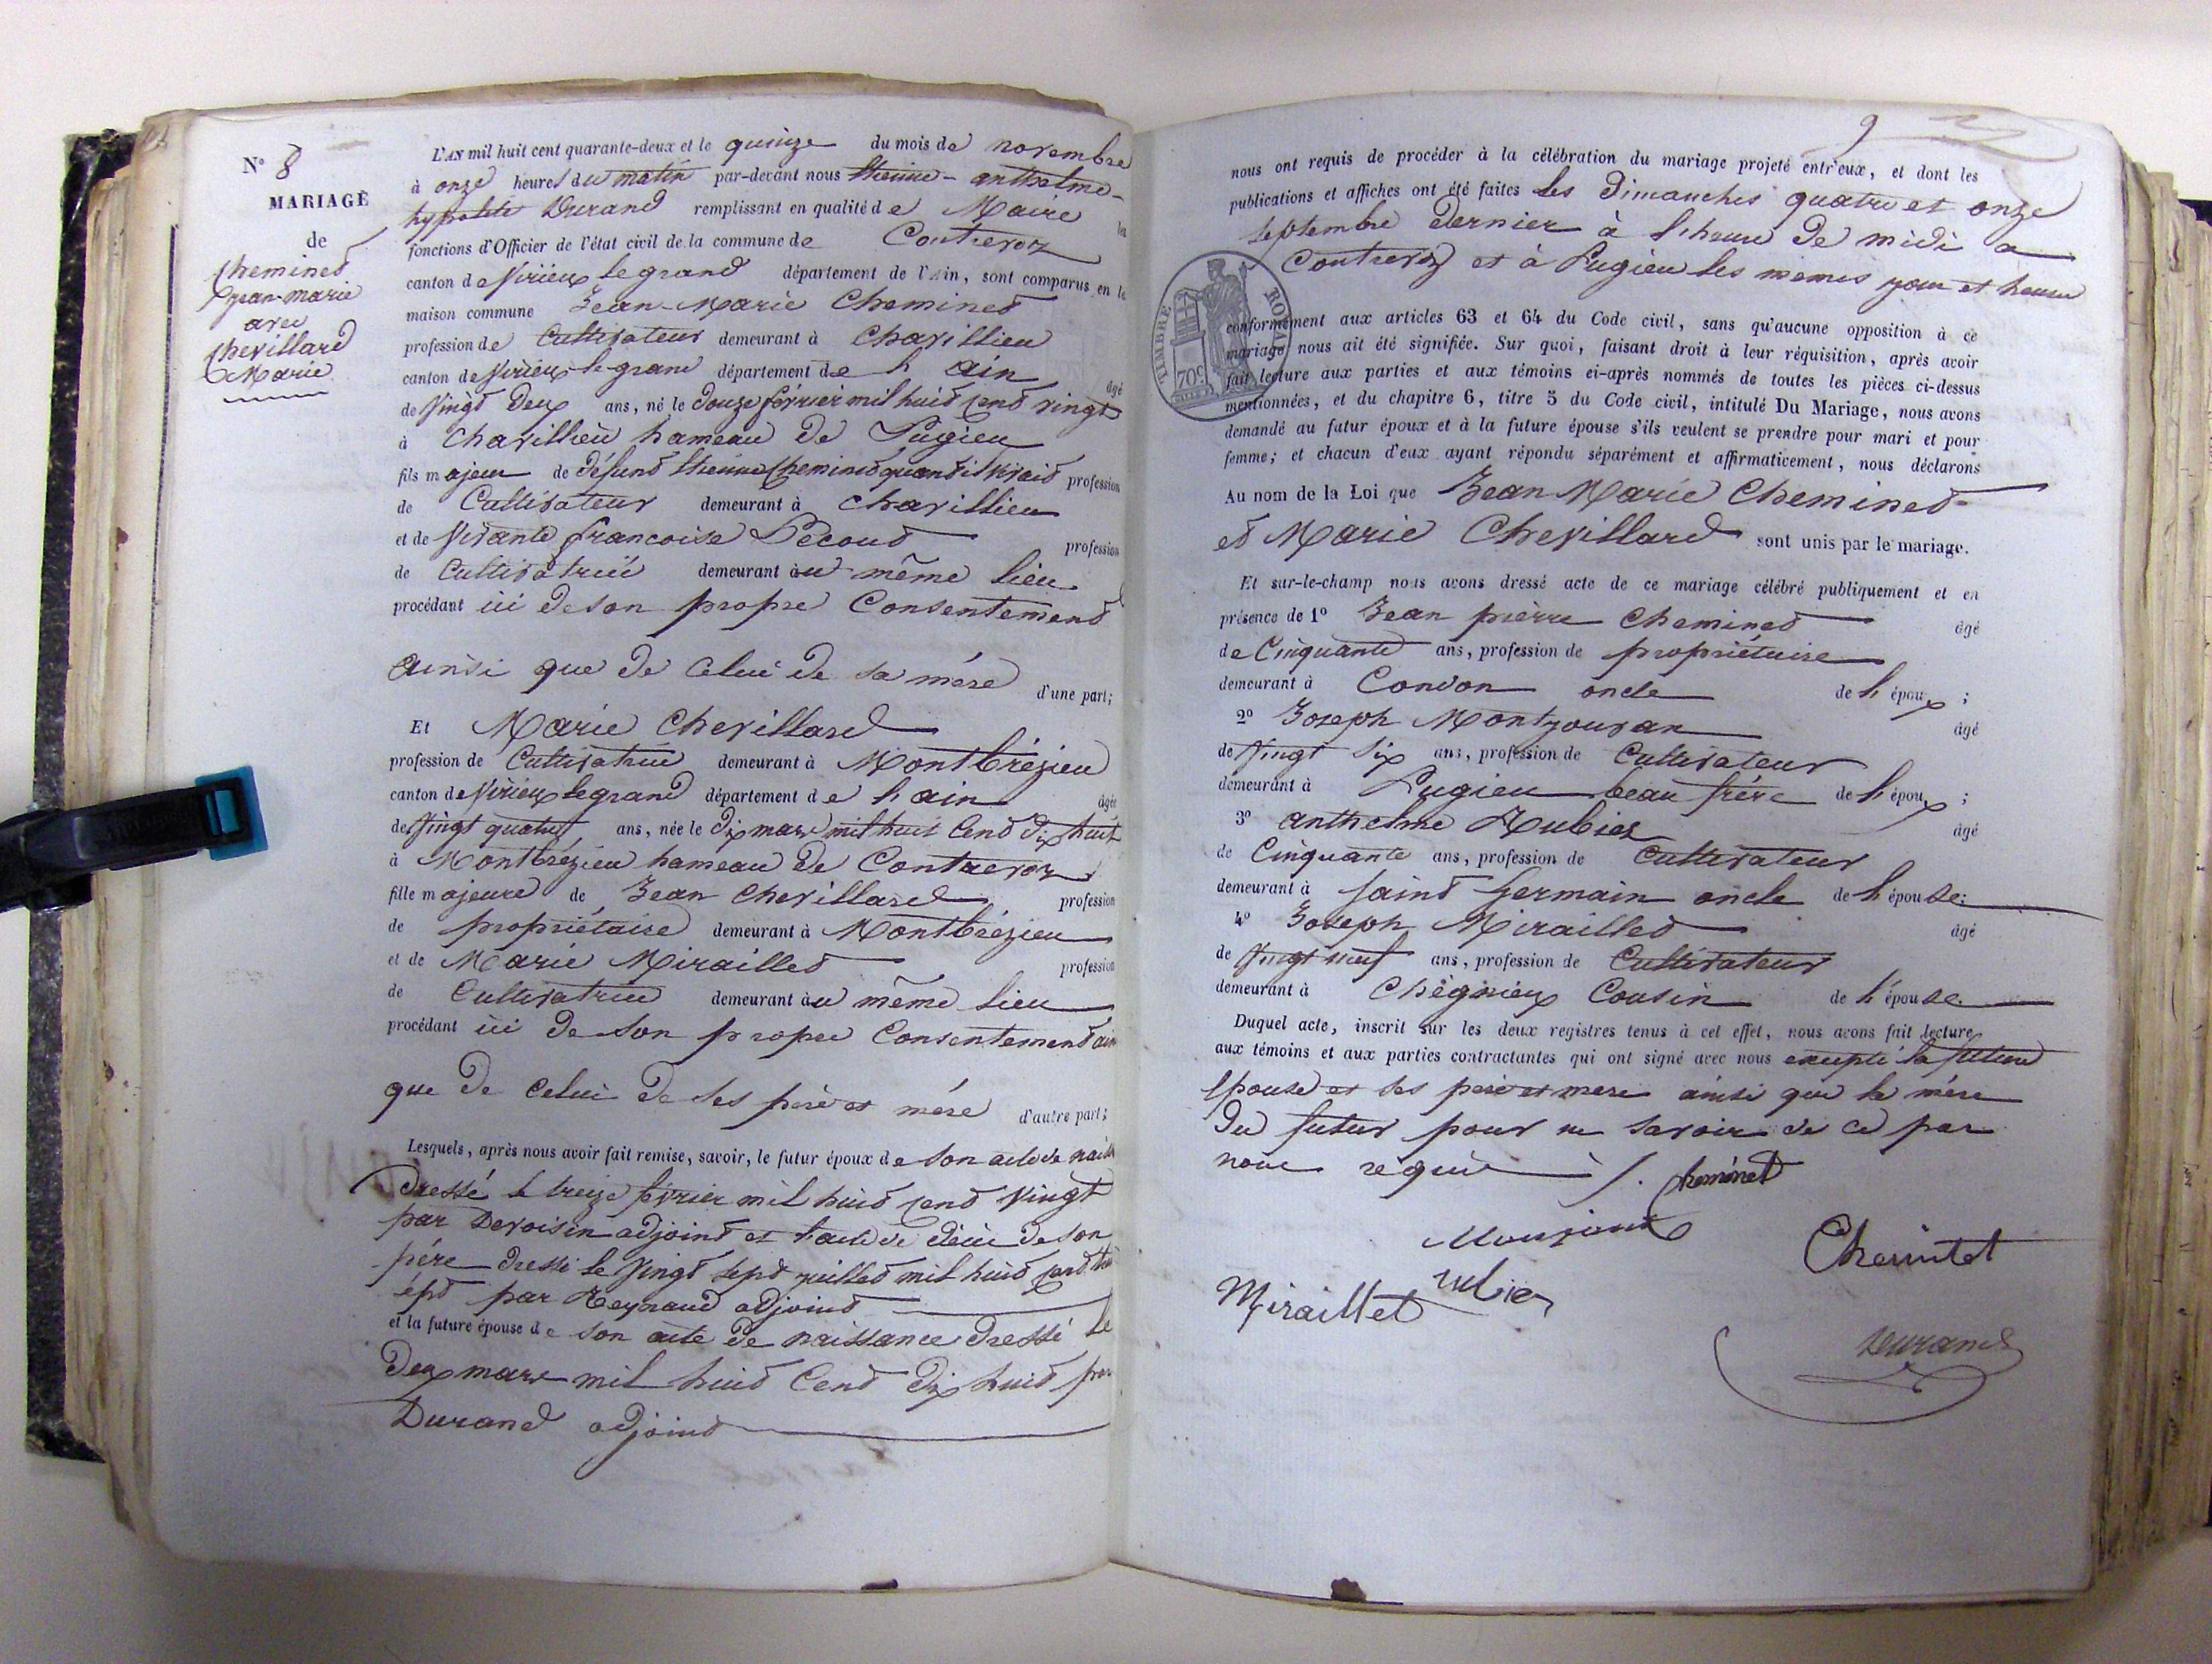 N° 8
MARIAGE
de
Cheminet
jean-marie
avec
Chevillard
Marie
L'AN mil huit cent quarante-deux et le quinze du mois de novembre
à onze heures du matin par-devant nous Etienne-anthelme-
hypolite Durand remplissant en qualité de Maire les
fonctions d'Officier de l'état civil de la commune de Contrevoz
canton de Virieux le grand département de l'Ain, sont comparus en la
maison commune Jean-Marie Cheminet
profession de Cultivateur demeurant à Chavillieu
canton de Virieux-le-grand département de l' ain âgé
de Vingt Deux ans, né le Douze février mil huit cent vingt
à Chavillieu hameau de Pugieu
fils majeur de défunt Etienne Cheminet quand il Vivait profession
de Cultivateur demeurant à Chavillieu
et de Vivante francoise Pecoud profession
de Cultivatrice demeurant au même lieu
procédant ici de son propre Consentement
ainsi que de Celui de sa mére d'une part;
Et Marie Chevillard
profession de Cultivatrice demeurant à Montbrézieu
canton de Virieux le grand département de l'ain âgée
de Vingt quatre ans, née le Dix mars mil huit Cent Dix huit
à Montbrézieu hameau de Contrevoz
fille majeure de Jean Chevillard profession
de propriétaire demeurant à Montbrézieu
et de Marie Miraillet profession
de Cultivatrice demeurant au même lieu
procédant ici de son propre Consentement ain
que de Celui de ses pére et mére d'autre part;
Lesquels, après nous avoir fait remise, savoir, le futur époux de son acte de naiss
Dressé le treize février mil huit cent Vingt
par Devoisin adjoint et l'acte de décé de son
pére dressé le Vingt sept juillet mil huit cent
sept par Reynaud adjoint
et la future épouse de son acte de naissance dressé le
Dix mars mil huit Cent Dix huit par
Durand adjoint
9
nous ont requis de procéder à la célébration du mariage projeté entr'eux, et dont les
publications et affiches ont été faites les Dimanches quatre et onze
septembre dernier à l'heure de midi a
Contrevoz et à Pugieu les memes jour et heure
TIMBRE ROYAL
70c
conformément aux articles 63 et 64 du Code civil, sans qu'aucune opposition à ce
mariage nous ait été signifiée. Sur quoi, faisant droit à leur réquisition, après avoir
fait lecture aux parties et aux témoins ci-après nommés de toutes les pièces ci-dessus
mentionnées, et du chapitre 6, titre 5 du Code civil, intitulé Du Mariage, nous avons
demandé au futur époux et à la future épouse s'ils veulent se prendre pour mari et pour
femme; et chacun d'eux ayant répondu séparément et affirmativement, nous déclarons
Au nom de la Loi que Jean Marie Cheminet
et Marie Chevillard sont unis par le mariage.
Et sur-le-champ nous avons dressé acte de ce mariage célébré publiquement et en
présence de 1° Jean pièrre Cheminet âgé
de Cinquante ans, profession de propriétaire
demeurant à Condon oncle de l'époux;
2° Joseph Montjouvan âgé
de Vingt Six ans, profession de Cultivateur
demeurant à Pugieu beau frére de l'époux;
3° anthelme Rubier âgé
de Cinquante ans, profession de Cultivateur
demeurant à Saint Germain oncle de l'épouse.
4° Joseph Miraillet âgé
de Vingt neuf ans, profession de Cultivateur
demeurant à Chégnieux Cousin de l'épouse.
Duquel acte, inscrit sur les deux registres tenus à cet effet, nous avons fait lecture
aux témoins et aux parties contractantes qui ont signé avec nous excepté la future
Epouse et ses pere et mere ainsi que la mére
du futur pour ne savoir de ce par
nous requis J. Cheminet
Cheminet
Miraillet
Durand